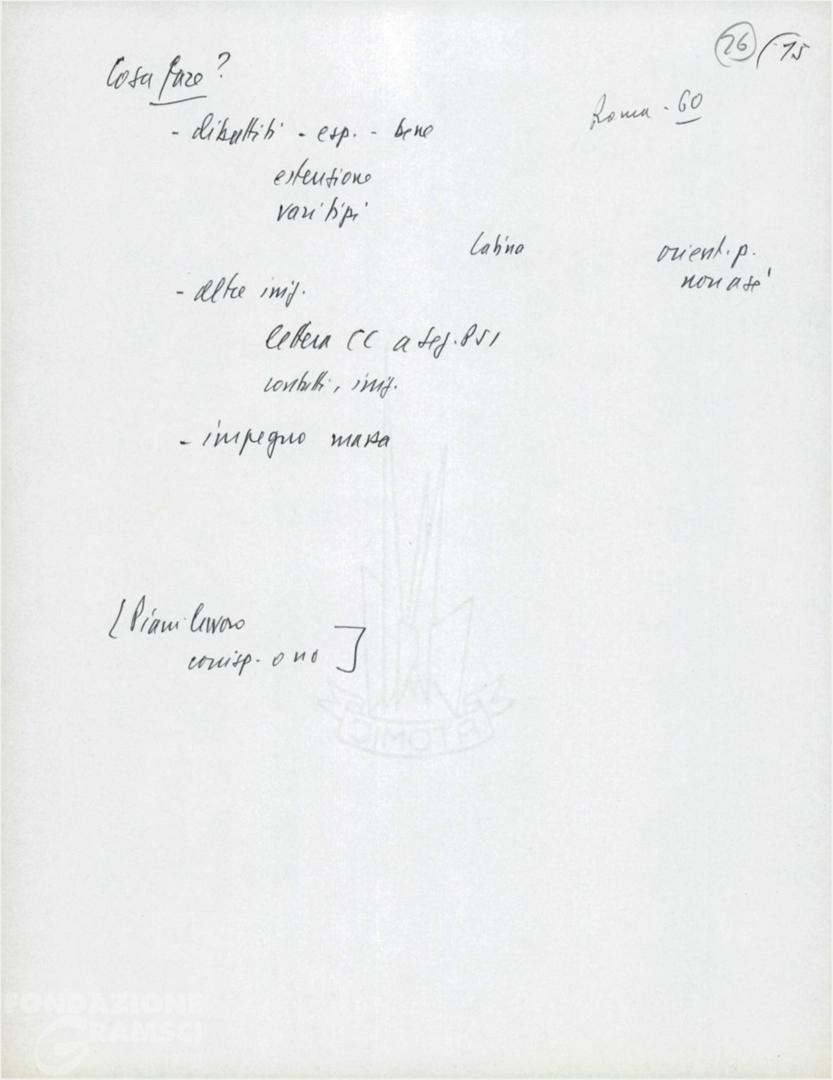 26 / 15
Cosa fare?
Roma - 60
- dibattiti - esp. - bene
estensione
vari tipi
Latina
orient. p.
non a se'
- altre iniz.
lettera CC a seg. PSI
contatti, iniz.
- impegno massa
[Piani lavoro
corrisp. o no]
FONDAZIONE
GRAMSCI